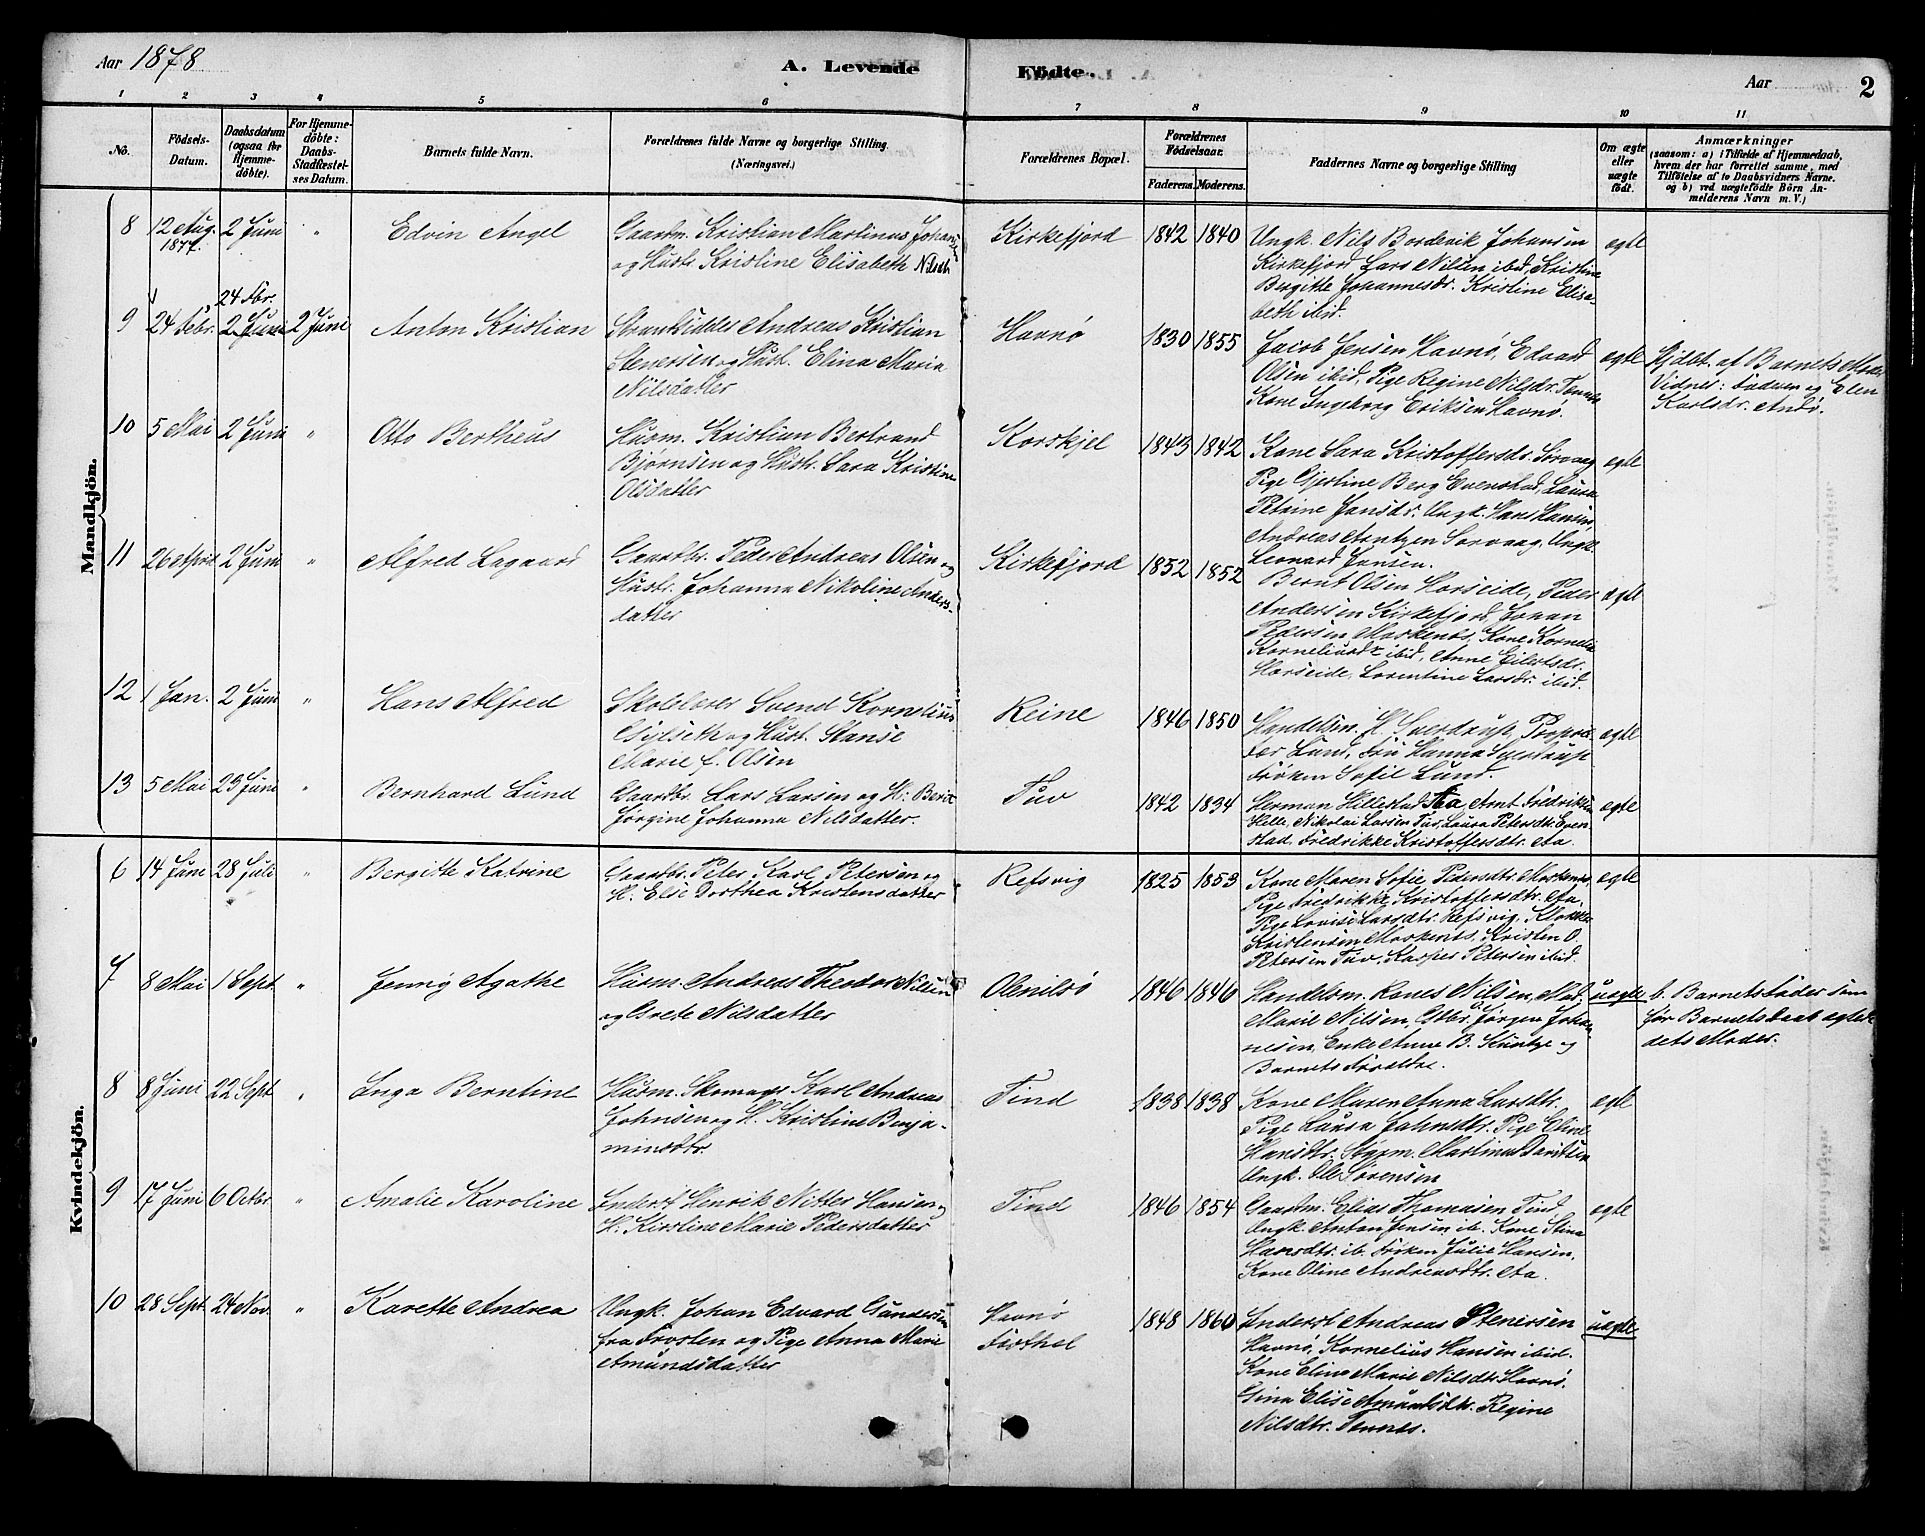 Aar 1878
A. Levende Födte.
Aar
2
1 2 3 4 5 6 7 8 9 10 11
No.
Födsels-Datum.
Daabsdatum (ogsaa for Hjemmedöbte).
For Hjemmedöbte: Daabs-Stadfæstelses Datum.
Barnets fulde Navn.
Forældrenes fulde Navne og borgerlige Stilling. (Næringsvei.)
Forældrenes Bopæl.
Forældrenes Födselsaar.
Faderens. Moderens.
Faddernes Navne og borgerlige Stilling
Om ægte eller uægte födt.
Anmærkninger
(saasom: a) i Tilfælde af Hjemmedaab, hvem der har forrettet samme, med Tilföielse af to Daabsvidners Navne. og b) ved uægtefödte Börn Anmelderens Navn m. V.)
Mandkjön.
8 12 Aug. 1877. 2 Juni " Edvin Angel
Gaardm. Kristian Martinus Johansen
og Hustr. Kristine Elisabeth Nilsdtr
Kirkefjord 1842 1840
Ungk. Nils Bordevik Johansen
Kirkefjord Lars Nilsen ibid, Kristine
Birgitte Johannesdr. Kristine Elisa-
beth ibid.
ægte
9 24 Febr. 24 Fbr. 2 Juni 2 Juni Anton Kristian
Strandsidder Andreas Kristian
Stenersen og Hust. Elina Maria
Nilsdatter
Havnø 1830 1855
Jacob Jensen Havnø, Edvard
Olsen ibid, Pige Regine Nilsdr. Tennes
Kone Ingeborg Eriksen Havnø.
ægte
Hjdbt. af Barnets Moder
Vidner: Faderen og Elen
Karlsdr. Andø.
10 5 Mai 2 Juni " Otto Bertheus
Husm. Kristian Bertrand
Bjørnsen og Hustr. Sara Kristine
Olsdatter
Korskjel 1843 1842
Kone Sara Kristoffersdr. Sørvaag
Pige Gjertine Berg Evenstad, Laura
Petrine Jansdr. Ungk. Hans Hansen,
Andreas Arntzen Sørvaag, Ungk.
Leonard Jansen.
ægte
11 26 April 2 Juni " Alfred Lagaard
Gaardbr. Peder Andreas Olsen og
Hustr. Johanna Nikoline Anders-
datter
Kirkefjord 1852 1852
Bernt Olsen Horseide, Peder
Andersen Kirkefjord, Johan
Pedersen Moskenes, Kone Kornelia
Korneliusdr ibid, Anne Eilertsdr.
Horseide, Lorentine Larsdr. ibid.
ægte
12 1 Jan. 2 Juni " Hans Alfred
Skolelærer Svend Kornelius
Gylseth og Hust. Hanse
Marie f. Olsen
Reine 1846 1850
Handelsm. H. Sverdrup, Proprie-
tær Lund, Fru Hanna Sverdrup
Frøken Sofie Lund.
ægte
13 5 Mai 23 Juni " Bernhard Lund
Gaardbr. Lars Larsen og H: Berit
Jørgine Johanna Nilsdatter.
Tuv 1842 1834
Herman Hillestad Aa, Arnt Fredriksen
Helle, Nikolai Larsen Tuv, Laura Petersdtr. Even-
stad, Fredrikke Kristoffersdtr. Aa.
ægte
Kvindekjön.
6 14 Juni 28 Juli " Bergitte Katrine
Gaardbr. Peter Karl Petersen og
H. Elise Dorthea Kristensdatter
Refsvig 1825 1853
Kone Maren Sofie Pedersdtr. Moskenes,
Pige Fredrikke Kristoffersdtr. Aa,
Pige Lovise Larsdtr. Refsvig, Klokker
Kristensen Moskenes, Kristen O.
Petersen Tuv, Kasper Petersen ibid.
ægte
7 8 Mai 1 Sept. " Jenny Agathe
Husm. Andreas Theodor Nilsen
og Grete Nilsdatter
Olenilsø 1846 1846
Handelsm. Rones Nilsen, Mad.
Marie Nilsen, Gbr. Jørgen Johan-
nesen, Enke Anne B. Kuntze og
Barnets Forældre.
uægte
b. Barnets Fader som
før Barnets Daab ægtede
dets Moder.
8 8 Juni 22 Sept " Inga Berntine
Husm. Skomag. Karl Andreas
Johnsen og H. Kristine Benja-
minsdtr.
Tind 1838 1838
Kone Maren Anna Larsdtr.
Pige Laura Johnsdtr. Pige Eline
Hansdtr. Styrm. Martinus Davidsen
Ungk. Ole Sørensen
ægte
9 17 Juni 6 Octbr " Amalie Karoline
Inderst Henrik Nitter Hansen og
H. Kirstine Marie Pedersdatter
Tind 1846 1854
Gaardm. Elias Thomasen Tind
Ungk. Anton Jensen ib. Kone Stina
Hansdtr. ib. Frøken Julie Hansen.
Kone Oline Andreasdtr. Aa.
ægte
10 28 Sept. 24 Nov. " Karette Andrea
Ungk. Johan Edvard Gundersen
fra Frosten og Pige Anna Marie
Amundsdatter
Havnø
1848 1860
Inderst Andreas Stenersen
Havnø, Kornelius Hansen ibid.
Kone Elina Marie Nilsdtr. Havnø.
Gina Elise Amundsdtr. Regine
Nilsdtr. Tennes.
uægte